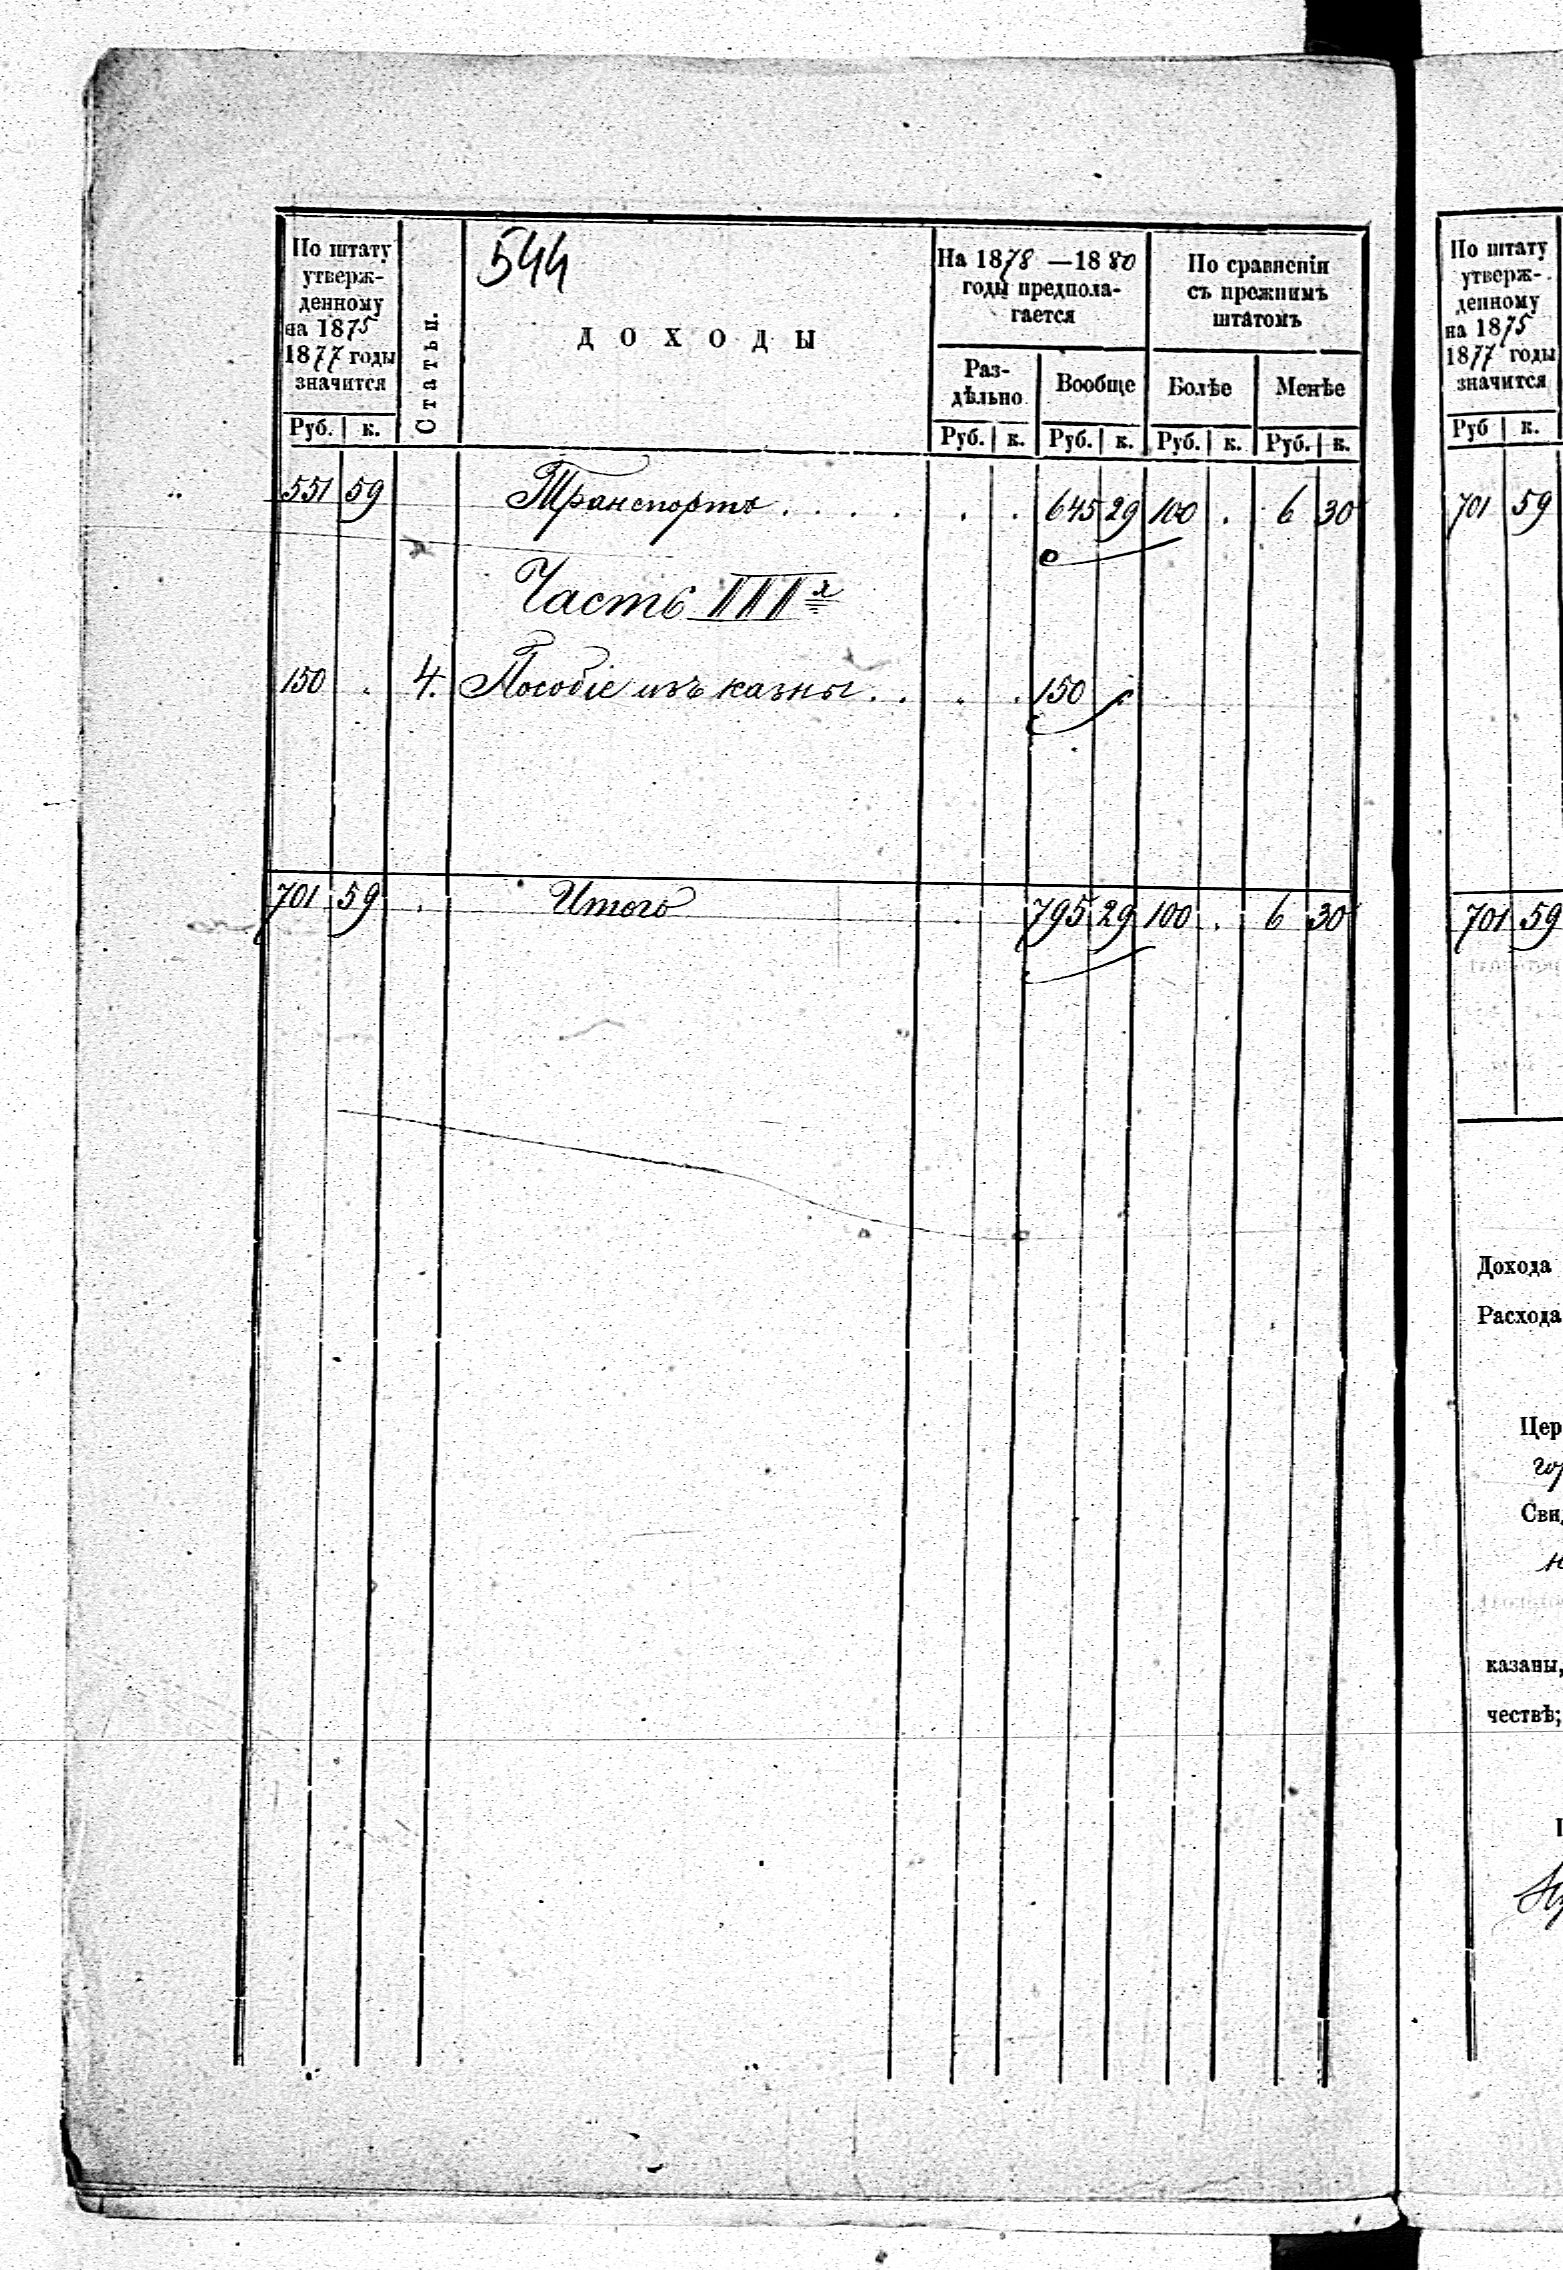 544
По штату
утверж-
денному
на 1875
1877 годы
значится
Руб. к.
Статьи.
ДОХОДЫ
На 1878 —1880
годы предпола-
гается
Раз-
дѣльно
Руб. к.
Вообще
Руб. к.
По сравненiи
съ прежнимъ
штатомъ
Болѣе
Руб. к.
Менѣе
Руб. к.
551 59 Транспортъ . . . . . . . 645 29 100 . 6 30
Часть III я
150 . 4. Пособіе изъ казны . . . . 150 .
701 59 . Итого 795 29 100 . 6 30
По штату
утверж-
денному
на 1875
1877 годы
значится
Руб к.
701 59
701 59
Дохода
Расхода
Цер
Сви
казаны,
чествѣ;